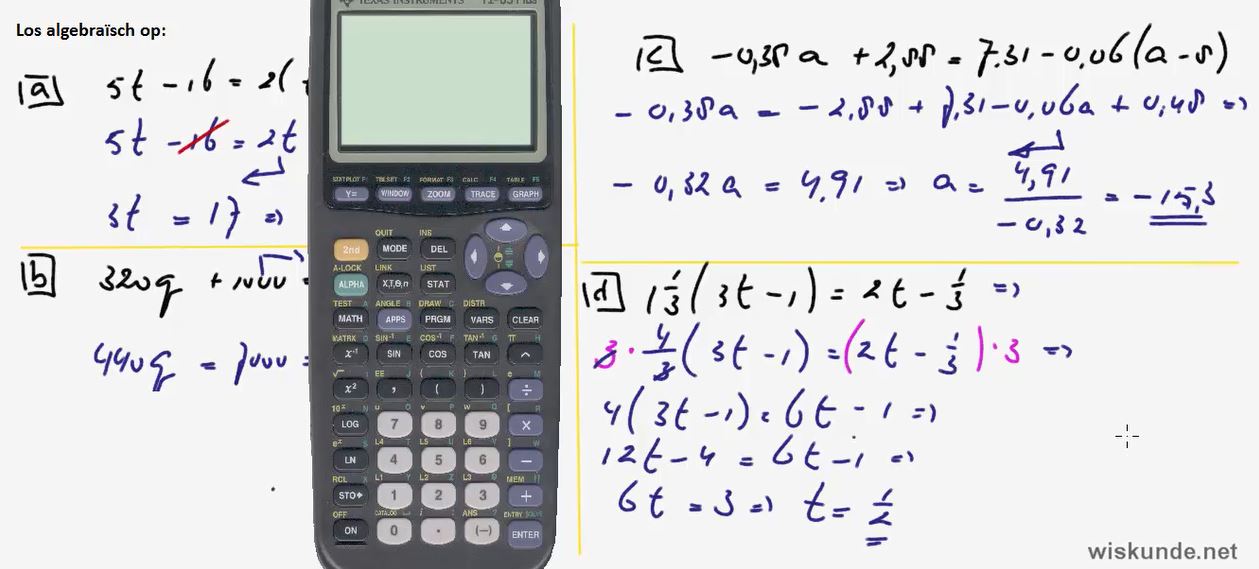 Los algebraïsch op:
a 5t - 16 = 2(
5t - 16 = 2t
3t = 17 ⇒
b 320q + 1000 =
440q = 7000 =
c -0,38a + 2,88 = 7.31 - 0.06(a - 8)
- 0,38a = - 2,88 + 7,31 - 0,06a + 0,48 ⇒
- 0,32a = 4,91 ⇒ a = 4,91 / -0,32 = -15,3
d 1 1/3 (3t - 1) = 2t - 1/3 ⇒
3 · 4/3 (3t - 1) = (2t - 1/3) · 3 ⇒
4(3t - 1) = 6t - 1 ⇒
12t - 4 = 6t - 1 ⇒
6t = 3 ⇒ t = 1/2
TEXAS INSTRUMENTS
STAT PLOT F1 TBLSET F2 FORMAT F3 CALC F4 TABLE F5
Y= WINDOW ZOOM TRACE GRAPH
QUIT INS
2nd MODE DEL
A-LOCK LINK LIST
ALPHA X,T,Θ,n STAT
TEST A ANGLE B DRAW C DISTR
MATH APPS PRGM VARS CLEAR
MATRX D SIN⁻¹ E COS⁻¹ F TAN⁻¹ G π H
x⁻¹ SIN COS TAN ^
√ I EE J { K } L e M
x² , ( ) ÷
10ˣ N u O v P w Q [ R
LOG 7 8 9 ×
eˣ S L4 T L5 U L6 V ] W
LN 4 5 6 −
RCL X L1 Y L2 Z L3 θ MEM "
STO▸ 1 2 3 +
OFF CATALOG i : ANS ? ENTRY SOLVE
ON 0 . (−) ENTER
wiskunde.net